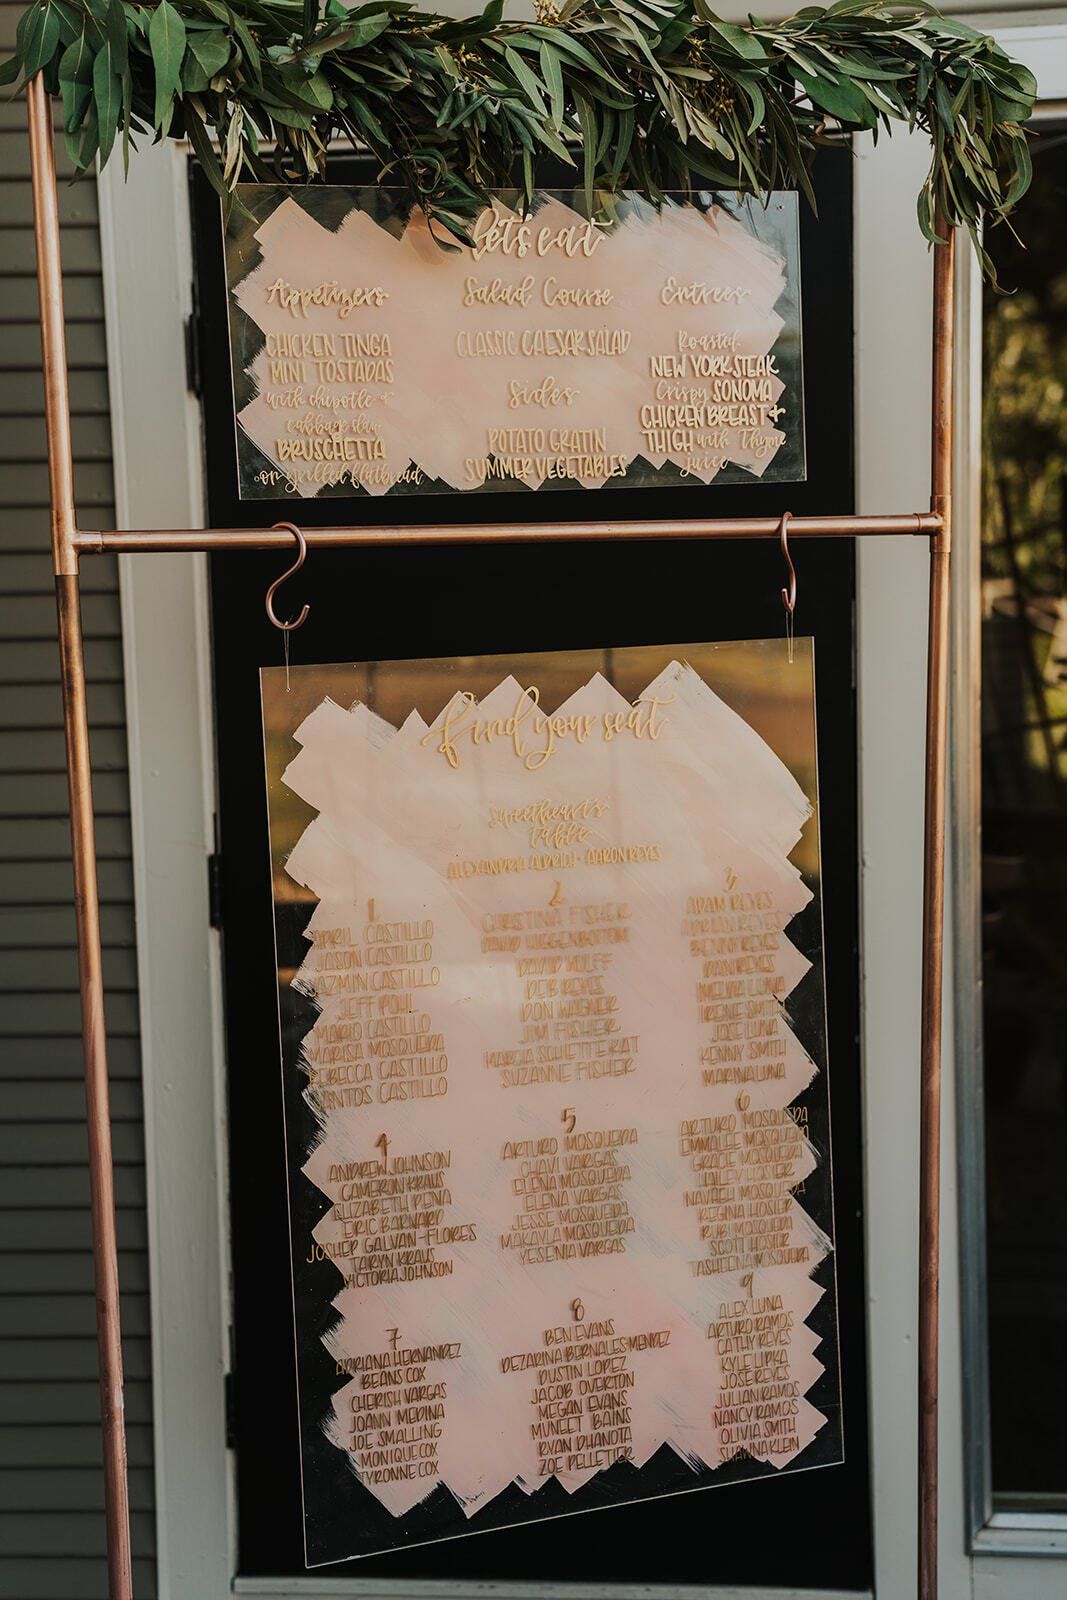 let's eat
Appetizers
CHICKEN TINGA
MINI TOSTADAS
with chipotle &
cabbage slaw
BRUSCHETTA
on grilled flatbread
Salad Course
CLASSIC CAESAR SALAD
Sides
POTATO GRATIN
SUMMER VEGETABLES
Entrees
Roasted
NEW YORK STEAK
Crispy SONOMA
CHICKEN BREAST &
THIGH with Thyme
juice
find your seat
sweethearts
table
ALEXANDRIA ALDRICH + AARON REYES
1
APRIL CASTILLO
JASON CASTILLO
JAZMIN CASTILLO
JEFF POHL
MARIO CASTILLO
MARISA MOSQUEDA
REBECCA CASTILLO
SANTOS CASTILLO
2
CHRISTINA FISHER
DAVID HIGGENBOTTOM
DAVID WULFF
DEB REYES
DON WAGNER
JIM FISHER
MARCIA
SUZANNE FISHER
3
ADAM REYES
ADRIAN REYES
BENNY REYES
DAN REYES
LUNA
IRENE SMITH
JOSE LUNA
KENNY SMITH
MARIVA LUNA
4
ANDREW JOHNSON
CAMERON KRAUS
ELIZABETH PENA
ERIC BARNARD
JOSHEP GALVAN-FLORES
TARYN KRAUS
VICTORIA JOHNSON
5
ARTURO MOSQUEDA
CHAVI VARGAS
ELENA MOSQUEDA
ELENA VARGAS
JESSE MOSQUEDA
MAKAYLA MOSQUEDA
YESENIA VARGAS
6
ARTURO MOSQUEDA
EMMALEE MOSQUEDA
GRACIE MOSQUEDA
HAILEY HOSIER
NAVAEH MOSQUEDA
REGINA HOSIER
RUBI MOSQUEDA
SCOTT HOSIER
TASHEENA MOSQUEDA
7
ADRIANA HERNANDEZ
BEANS COX
CHERISH VARGAS
JOANN MEDINA
JOE SMALLING
MONIQUE COX
TYRONNE COX
8
BEN EVANS
DEZARINA BERNALES-MENDEZ
DUSTIN LOPEZ
JACOB OVERTON
MEGAN EVANS
MUNEET BAINS
RYAN DHANOTA
ZOE PELLETIER
9
ALEX LUNA
ARTURO RAMOS
CATHY REYES
KYLE LIPKA
JOSE REYES
JULIAN RAMOS
NANCY RAMOS
OLIVIA SMITH
SHAWNA KLEIN